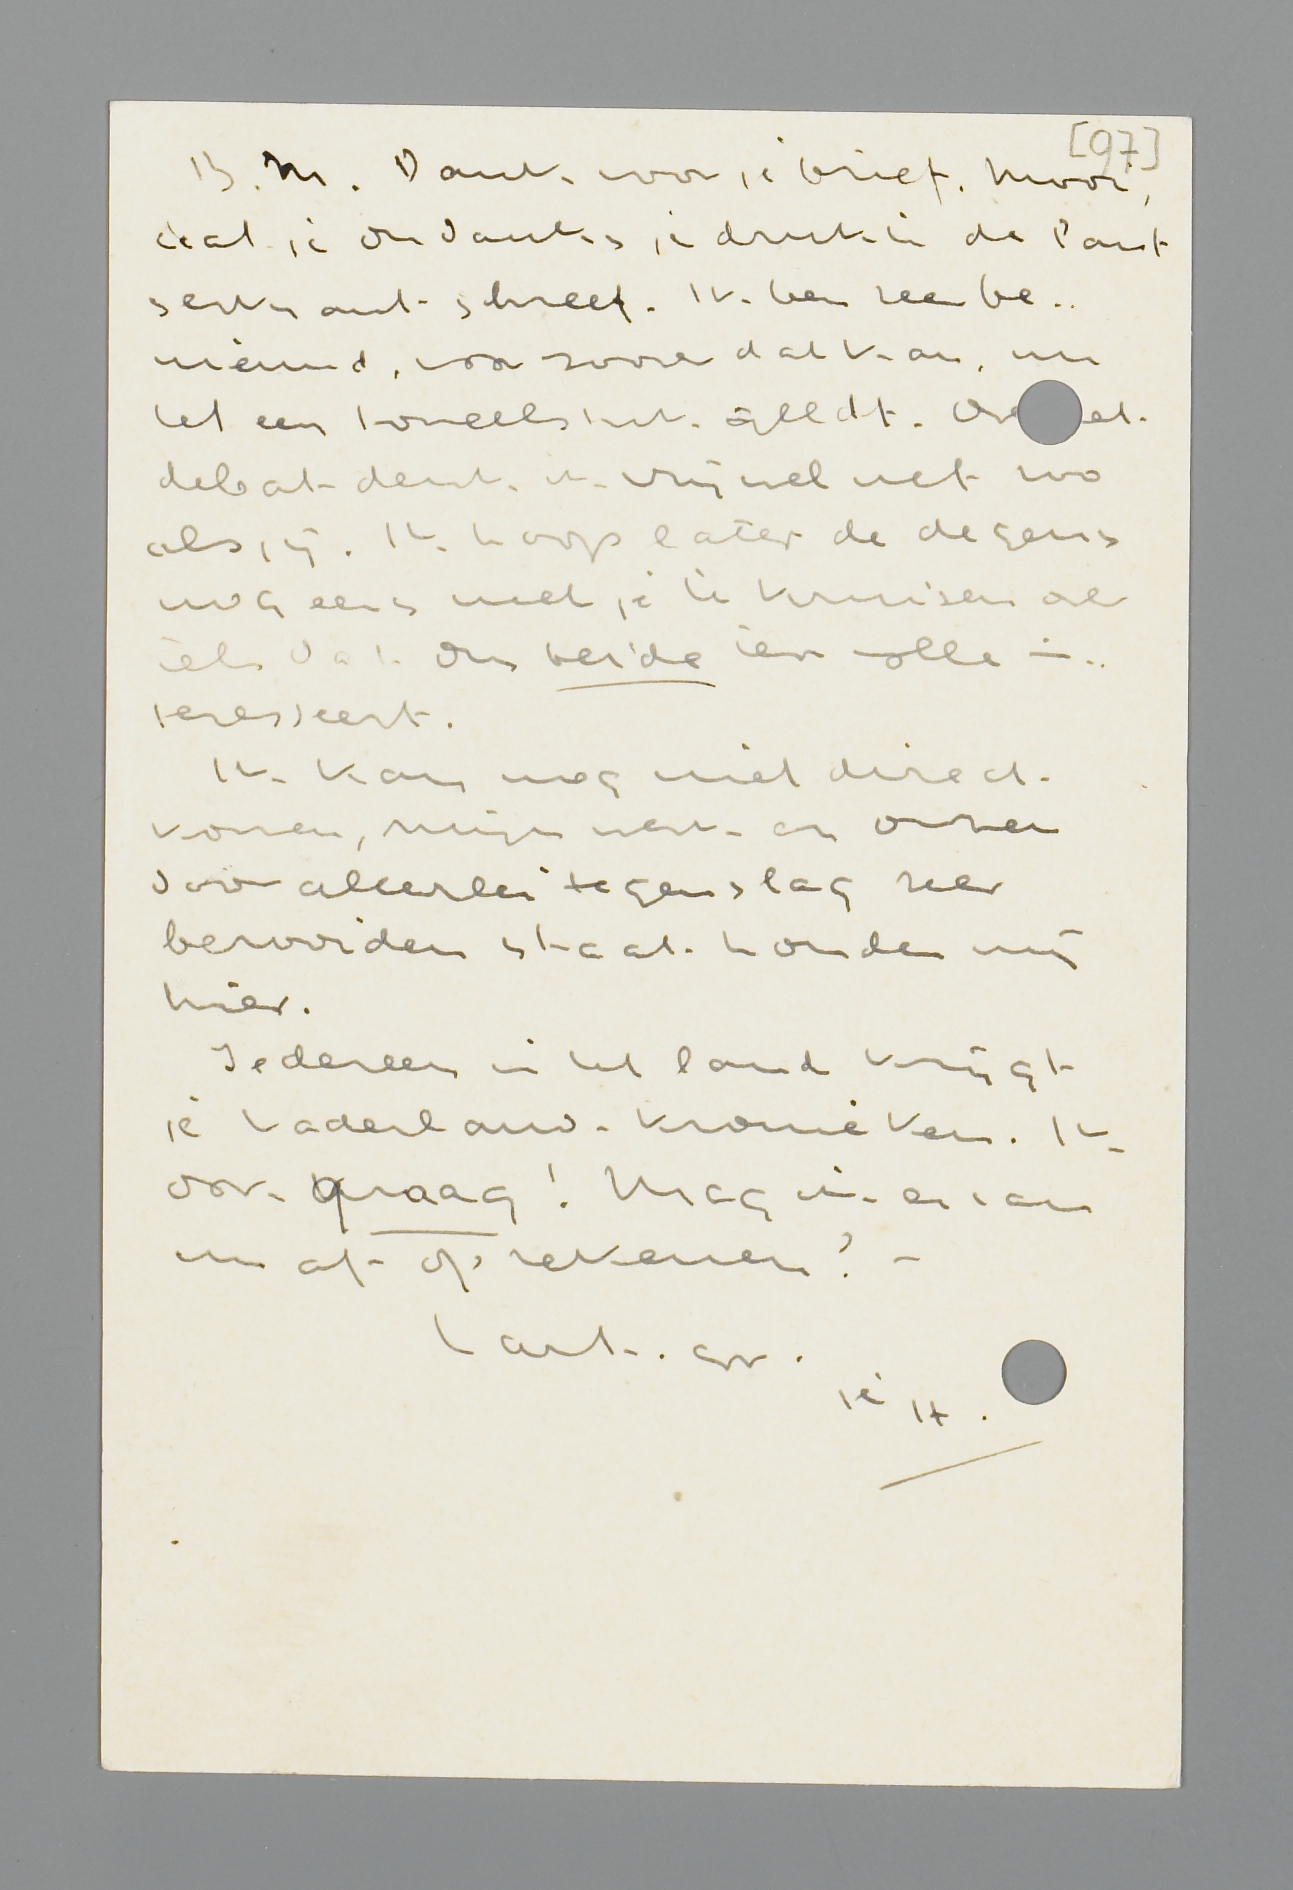 [97]
B. M. Dank voor je brief. Mooi,
dat je ondanks je drukte de Post
schreef. Ik ben zeer be..
nieuwd, voor zoover dat kan, nu
het een tooneelstuk geldt. Over het
debat denk ik vrijwel net zoo
als jij. Ik hoop later de degens
nog eens met je te kruisen over
iets dat ons beide ten volle in..
teresseert.
Ik kan nog niet direct
komen, mijn werk en onzen
door allerlei tegenslag zeer
berooiden staat houden mij
hier.
Iedereen in het land krijgt
je Vaderland-kronieken. Ik
ook graag! Mag ik er van
nu af op rekenen? –
Hart. gr.
je H.